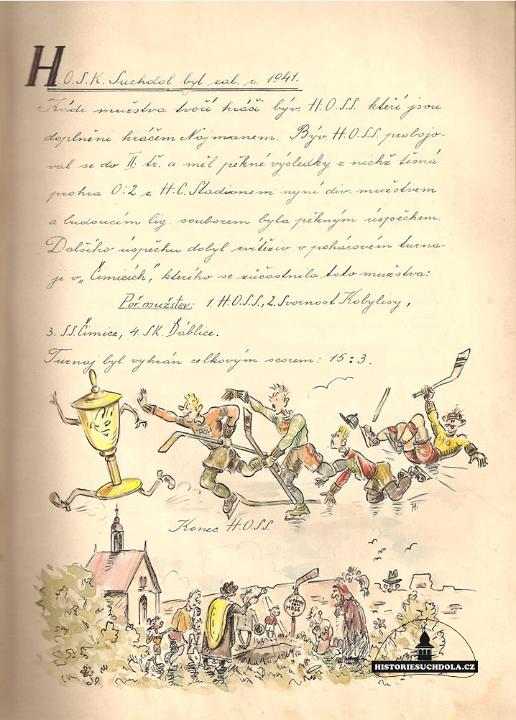 H.O.S.K. Suchdol byl zal. r. 1941.
Kádr mužstva tvoří hráči býv. H.O.S.S. kteří jsou
doplněni hráčem Najmanem. Býv. H.O.S.S. probojo-
val se do II. tř. a měl pěkné výsledky z nichž těsná
prohra 0:2 z H.C. Stadionem nyní div. mužstvem
a budoucím lig. souborem byla pěkným úspěchem.
Dalšího úspěchu dobyl zvítěziv v pohárovém turna-
ji v „Čimicích", kterého se zúčastnila tato mužstva:
Poř. mužstev: 1. H.O.S.S., 2. Svornost Kobylisy,
3. S.S. Čimice, 4. SK. Ďáblice.
Turnaj byl vyhrán celkovým scorem: 15:3.
Konec H.O.S.S.
HISTORIESUCHDOLA.CZ